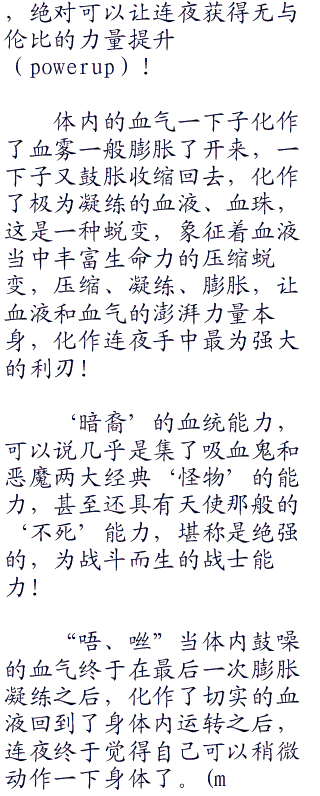 ，绝对可以让连夜获得无与
伦比的力量提升
（powerup）！
体内的血气一下子化作
了血雾一般膨胀了开来，一
下子又鼓胀收缩回去，化作
了极为凝练的血液、血珠，
这是一种蜕变，象征着血液
当中丰富生命力的压缩蜕
变，压缩、凝练、膨胀，让
血液和血气的澎湃力量本
身，化作连夜手中最为强大
的利刃！
‘暗裔’的血统能力，
可以说几乎是集了吸血鬼和
恶魔两大经典‘怪物’的能
力，甚至还具有天使那般的
‘不死’能力，堪称是绝强
的，为战斗而生的战士能
力！
“唔、咝”当体内鼓噪
的血气终于在最后一次膨胀
凝练之后，化作了切实的血
液回到了身体内运转之后，
连夜终于觉得自己可以稍微
动作一下身体了。(m